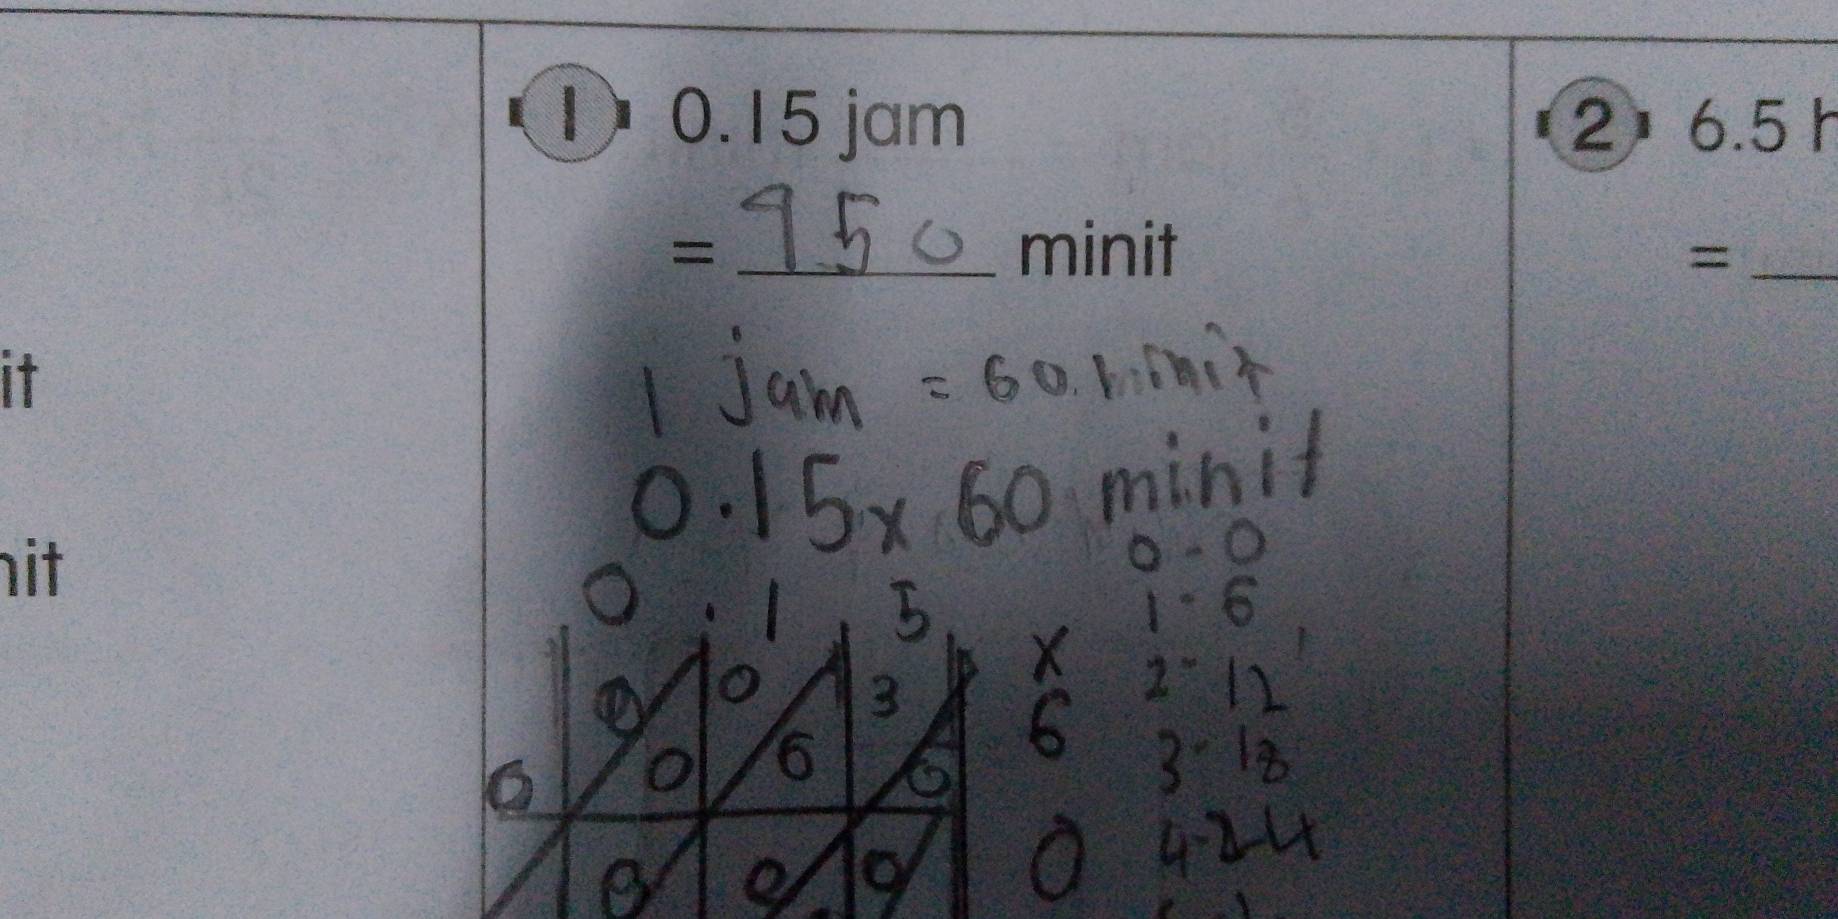 1 0.15 jam
= 950 minit
1 jam = 60 minit
0.15 x 60 minit
0 - 0
1 - 6
2 - 12
3 - 18
4 - 24
0 . 1 5
x
0 0 3
6
0 0 6 0
0 0 0
0
2 6.5 h
=
it
nit